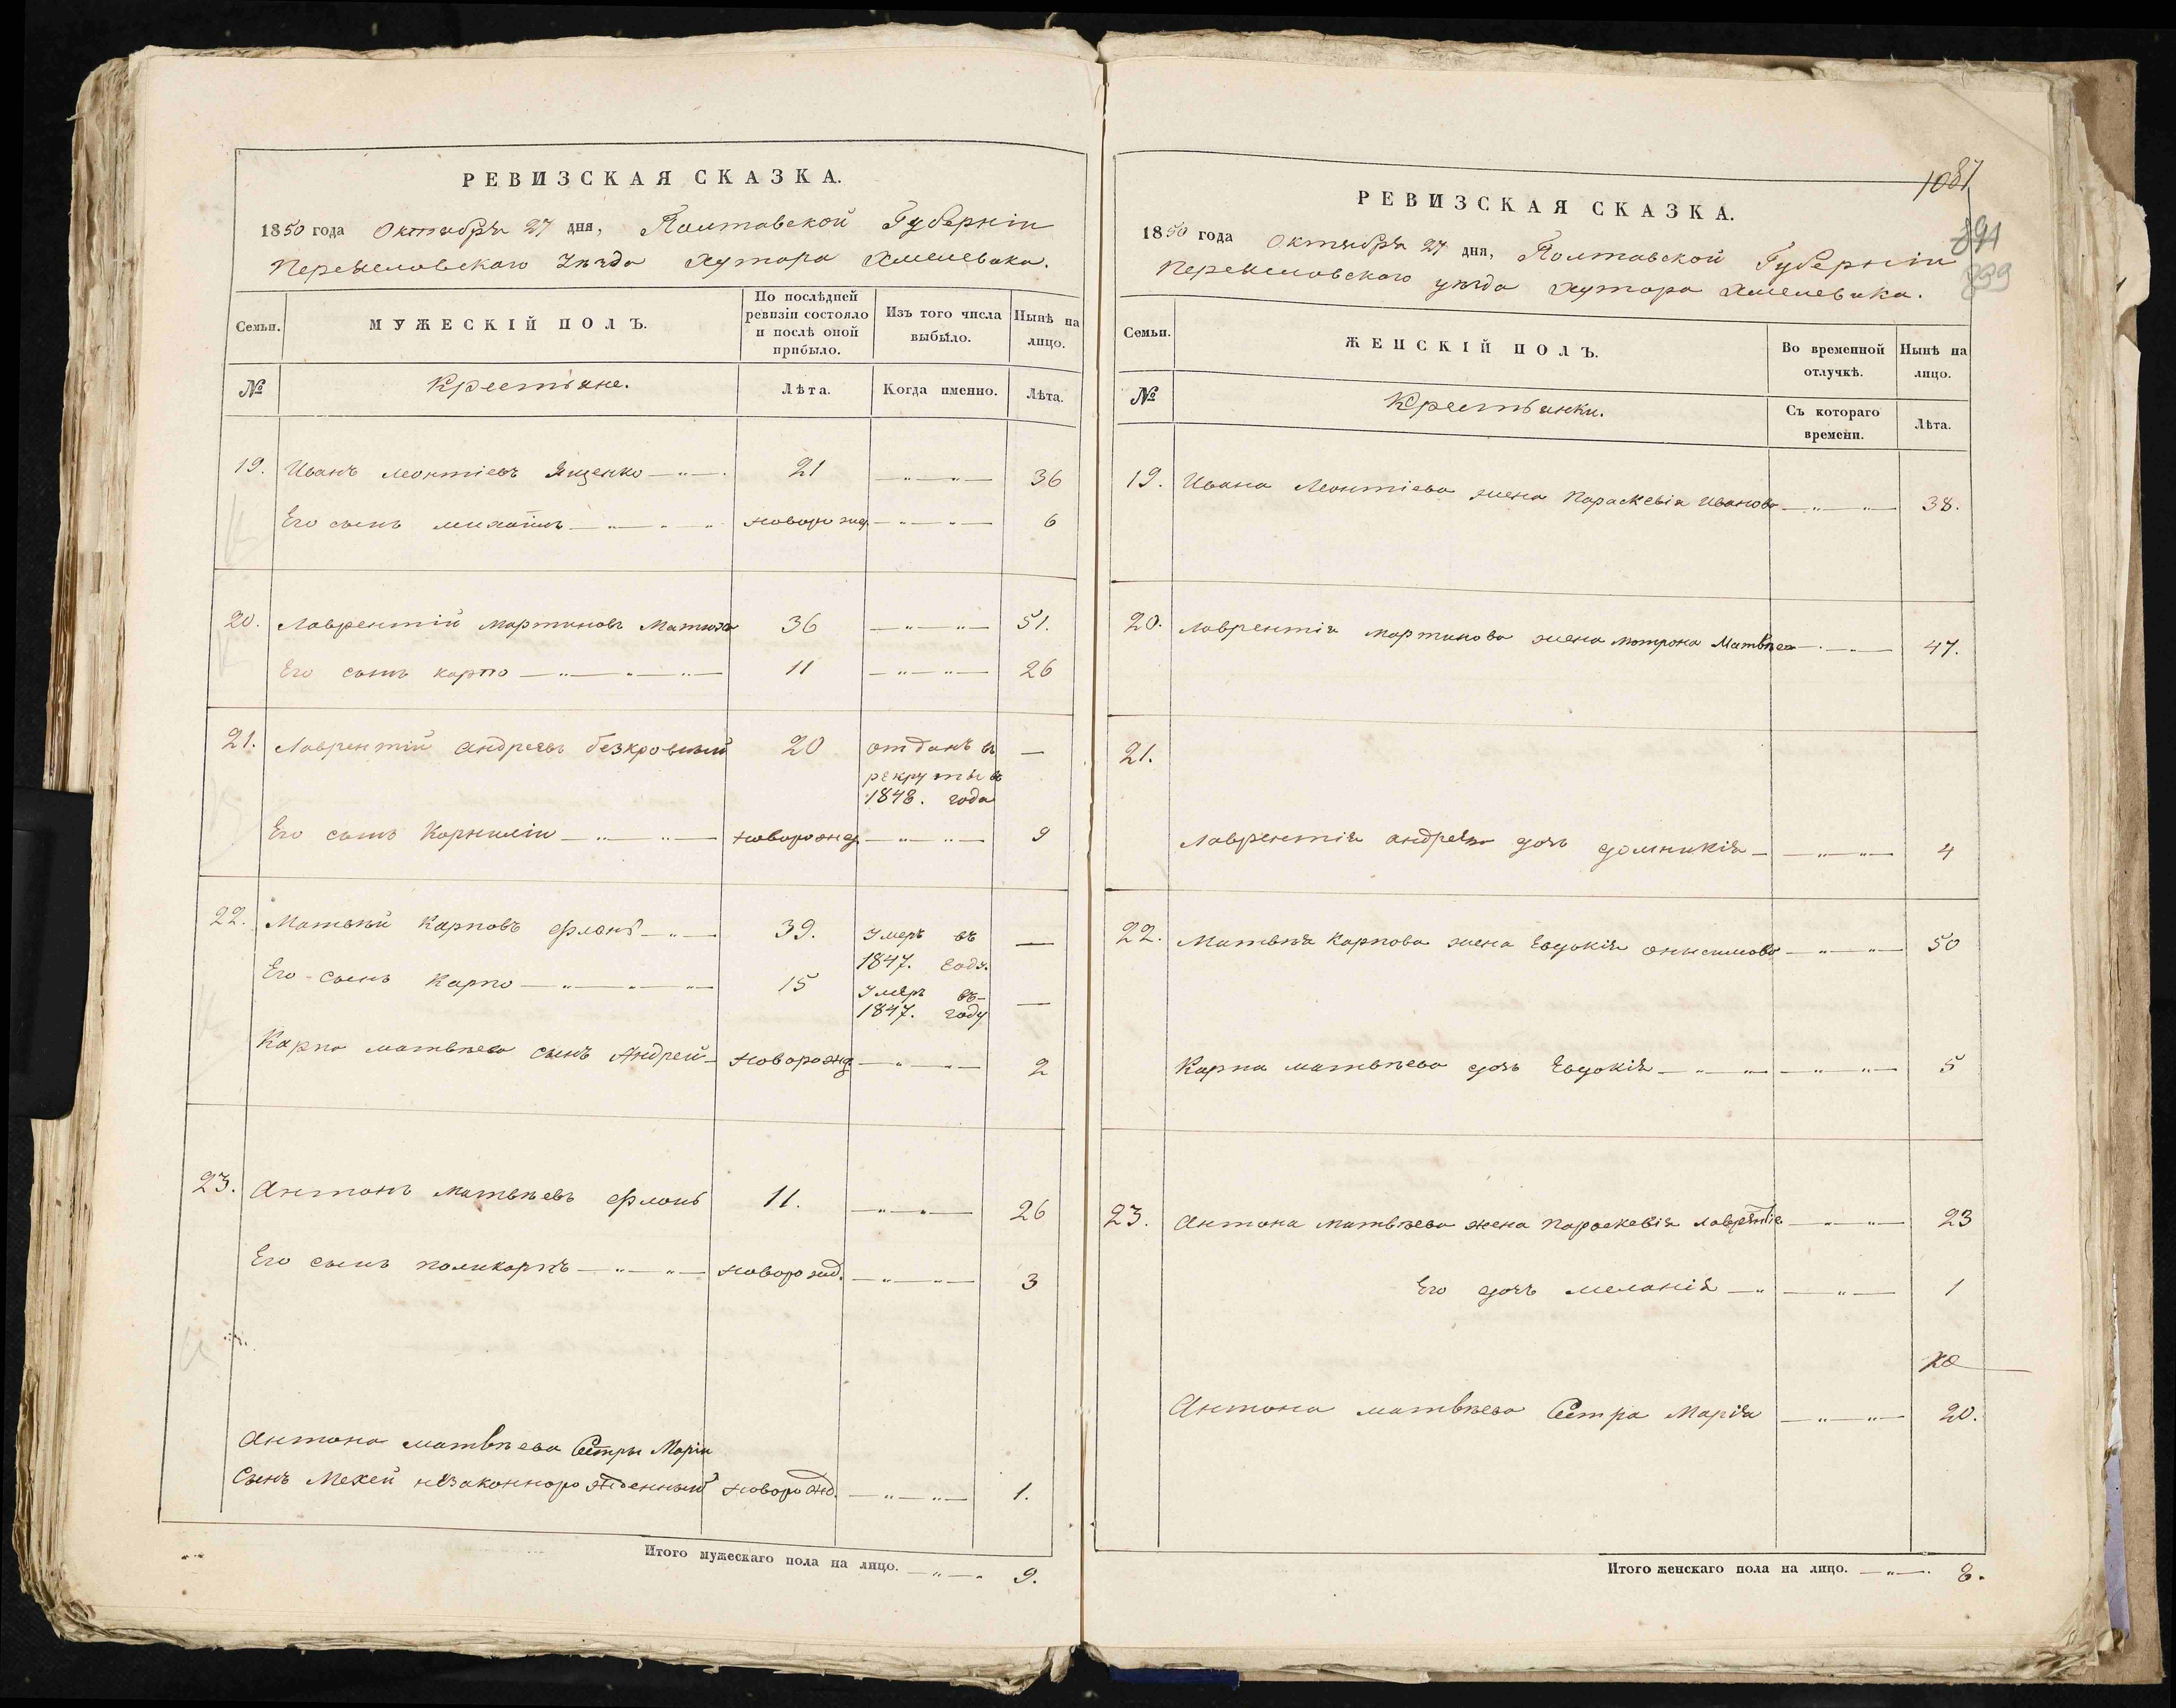 РЕВИЗСКАЯ СКАЗКА.
1850 года Октября 27 дня, Полтавской Губерніи
Переяславскаго Уезда Хутора Хмелевика.
Семьи.
МУЖЕСКІЙ ПОЛЪ.
По послѣдней ревизіи состояло и послѣ оной прибыло.
Изъ того числа выбыло.
Нынѣ на лицо.
№
Крестьяне.
Лѣта.
Когда именно.
Лѣта.
19. Иванъ Леонтіевъ Ященко 21 36
Его сынъ Михаилъ новорожд 6
20. Лаврентій Мартиновъ Матюха 36 51.
Его сынъ Карпо 11 26
21. Лаврентій Андреевъ Безкровный 20 отданъ в —
рекруты в
1848. года
Его сынъ Корнилій новорожд 9
22. Матвѣй Карповъ 39. Умеръ въ —
1847. году.
Его сынъ Карпо 15 Умеръ въ —
1847. году
Карпа Матвѣева сынъ Андрей новорожд 2
23. Антонъ Матвѣевъ 11. 26
Его сынъ Поликарпъ новорожд. 3
Антона Матвѣева Сестры Маріи
Сынъ Мехей незаконнорожденный новорожд. 1.
Итого мужескаго пола на лицо. 9.
1081
891
899
РЕВИЗСКАЯ СКАЗКА.
1850 года Октября 27 дня, Полтавской Губерніи
Переяславскаго уезда Хутора Хмелевика.
Семьи.
ЖЕНСКІЙ ПОЛЪ.
Во временной отлучкѣ.
Нынѣ на лицо.
№
Крестьянки.
Съ котораго времени.
Лѣта.
19. Ивана Леонтіева жена Параскевія Иванова 38.
20. Лаврентія Мартинова жена Мотрона Матвѣева 47.
21.
Лаврентія Андреева дочь Домникія 4
22. Матвѣя Карпова жена Евдокія Онисимова 50
Карпа Матвѣева дочь Евдокія 5
23. Антона Матвѣева жена Параскевія Лаврентіе 23
Его дочь Меланія 1
Антона Матвѣева Сестра Марія 20.
Итого женскаго пола на лицо. 8.